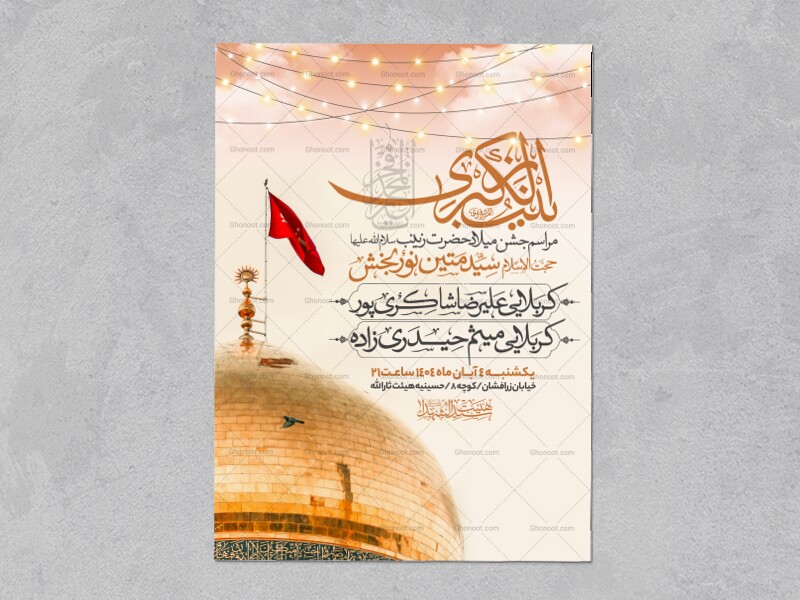 زینب الکبری
مراسم جشن میلاد حضرت زینب سلام الله علیها
حجت الاسلام سید متین نوربخش
کربلایی علیرضا شاکری پور
کربلایی میثم حیدری زاده
یکشنبه ٤ آبان ماه ۱٤۰٤ ساعت ۲۱
خیابان زرافشان / کوچه ۸ / حسینیه هیئت ثارالله
هیئت سیدالشهدا
Ghonoot.com